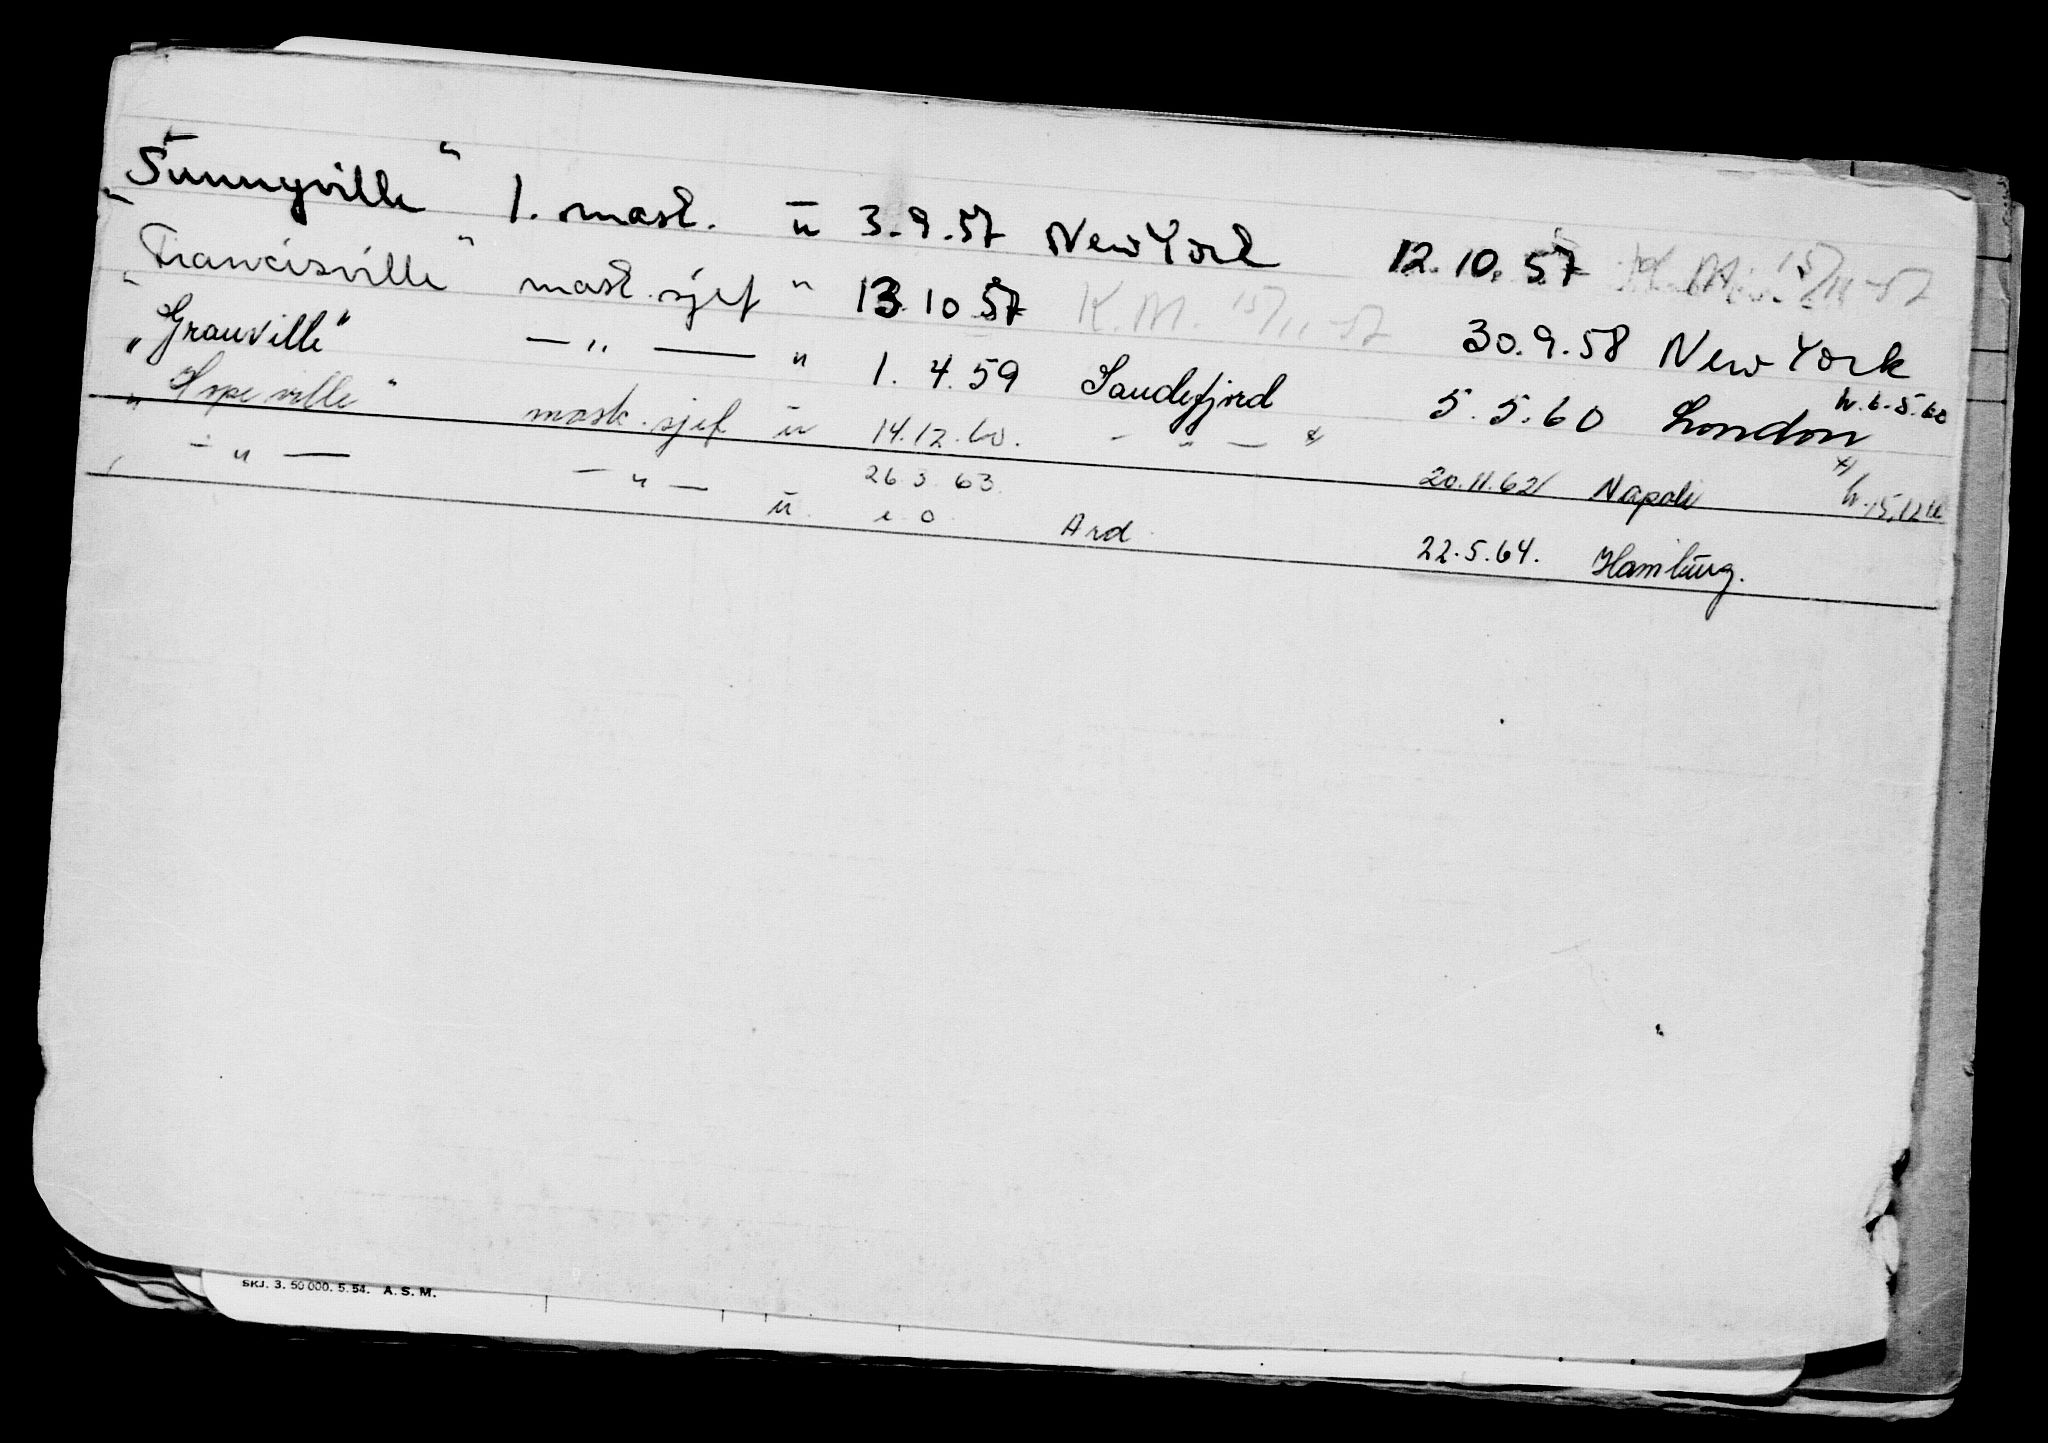 "Sunnyville" 1. mask. ü 3.9.57 New York 12.10.57
"Francisville" mask.sjef " 13.10.57 K.M. 15/11-57 30.9.58 New York
"Granville" — " — " 1.4.59 Sandefjord 5.5.60 London h.6.5.60
"Hopeville" mask.sjef ü 14.12.60. - " - x 20.11.62 Napoli x) h.15.12.60
- " - - " - ü 26.3.63. Ard. 22.5.64. Hamburg.
SKJ. 3. 50 000. 5. 54. A. S. M.